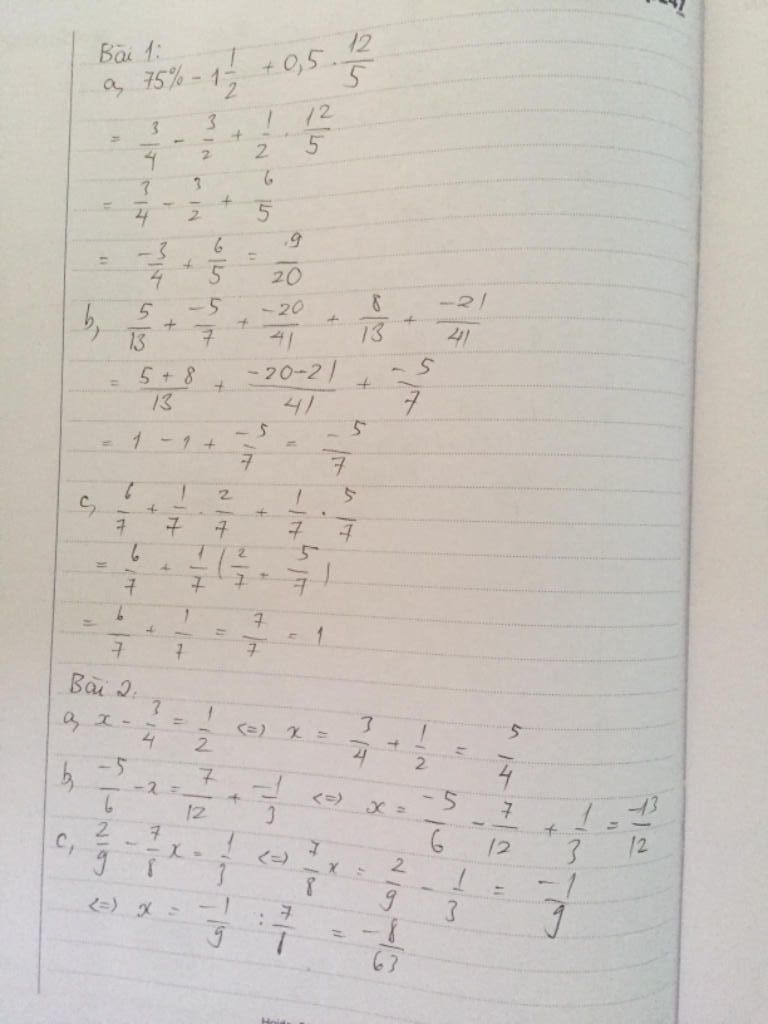 Bài 1:
a, 75% - 1 1/2 + 0,5 . 12/5
= 3/4 - 3/2 + 1/2 . 12/5
= 3/4 - 3/2 + 6/5
= -3/4 + 6/5 = 9/20
b, 5/13 + -5/7 + -20/41 + 8/13 + -21/41
= 5+8/13 + -20-21/41 + -5/7
= 1 - 1 + -5/7 = -5/7
c, 6/7 + 1/7 . 2/7 + 1/7 . 5/7
= 6/7 + 1/7 (2/7 + 5/7)
= 6/7 + 1/7 = 7/7 = 1
Bài 2:
a, x - 3/4 = 1/2 <=> x = 3/4 + 1/2 = 5/4
b, -5/6 - x = 7/12 + -1/3 <=> x = -5/6 - 7/12 + 1/3 = -13/12
c, 2/9 - 7/8 x = 1/3 <=> 7/8 x = 2/9 - 1/3 = -1/9
<=> x = -1/9 : 7/8 = -8/63